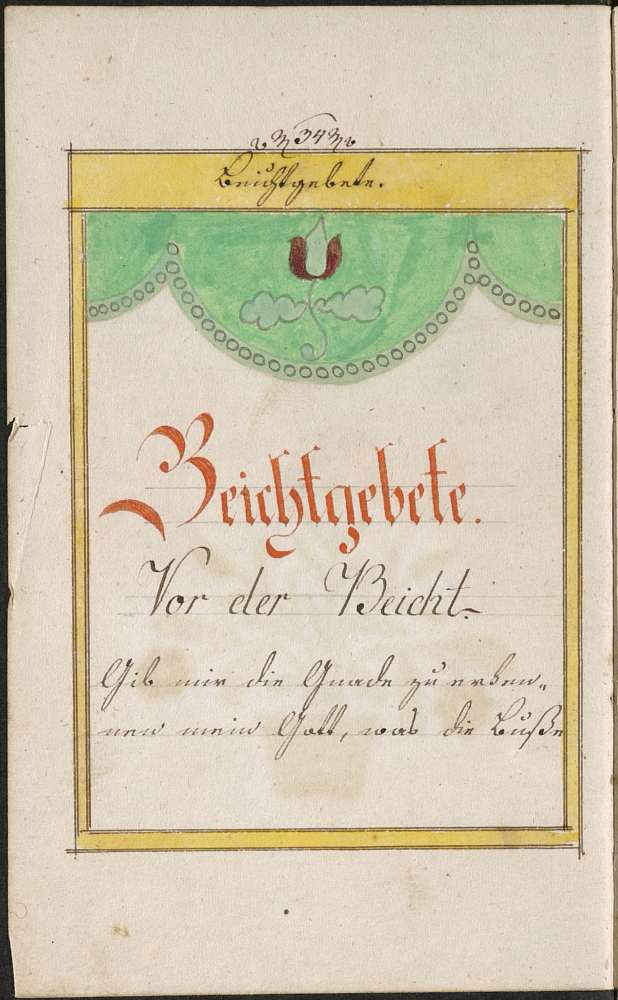 34
Beichtgebete.
Beichtgebete.
Vor der Beicht.
Gib mir die Gnade zu erken„
nen mein Gott, was die Buße